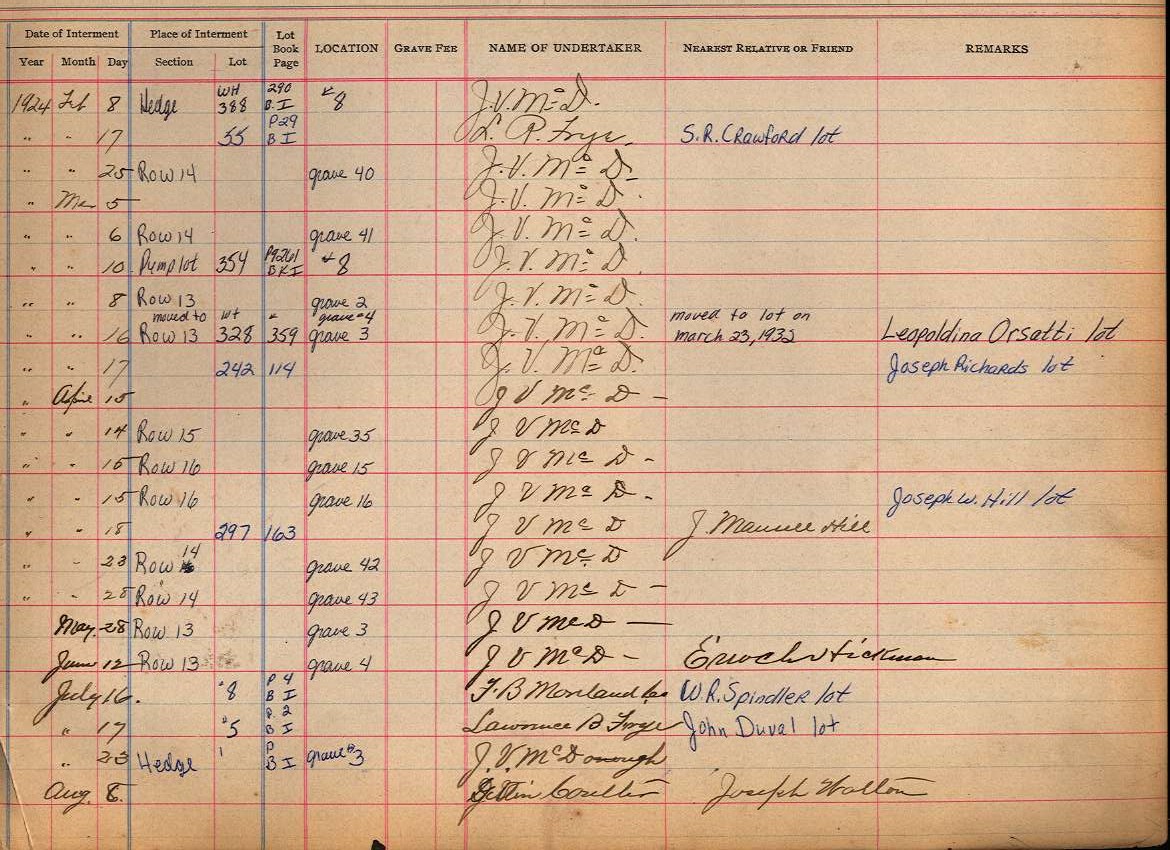 Date of Interment Place of Interment Lot Book Page LOCATION GRAVE FEE NAME OF UNDERTAKER NEAREST RELATIVE OR FRIEND REMARKS
Year Month Day Section Lot
1924 Feb 8 Hedge WH 388 290 B.I #8 J.V. McD.
" " 17 55 P29 B I L. P. Frye S.R. Crawford lot
" " 25 Row 14 grave 40 J. V. Mc D.
" Mar 5 J. V. Mc D.
" " 6 Row 14 grave 41 J. V. Mc D.
" " 10 Pump lot 354 Pg261 BK I #8 J. V. Mc D
" " 8 Row 13 grave 2 J. V. Mc D.
moved to grave #4 moved to lot on
" " 16 Row 13 328 359 grave 3 J. V. Mc D march 23, 1932 Leopoldina Orsatti lot
" " 17 242 114 J. V. Mc D. Joseph Richards lot
" April 15 J V Mc D -
" " 14 Row 15 grave 35 J V McD
" " 15 Row 16 grave 15 J V Mc D -
" " 15 Row 16 grave 16 J V Mc D - Joseph W. Hill lot
" " 18 297 163 J V Mc D J. Maurice Hill
" " 23 Row 14 grave 42 J V Mc D
" " 28 Row 14 grave 43 J V Mc D -
May 28 Row 13 grave 3 J V McD -
June 12 Row 13 grave 4 J V McD - Enoch Hickman
July 16. "8 P 4 B I F. B Moreland W.R. Spindler lot
" 17 "5 P. 2 B I Lawrence B Frye John Duval lot
" 23 Hedge 1 P B I grave #3 J. V. McDonough
Aug. 8. Coulter Joseph Walton